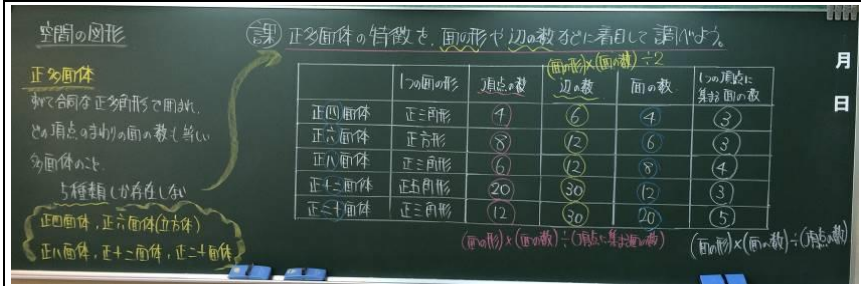 空間の図形
正多面体
すべて合同な正多角形で囲まれ、
どの頂点のまわりの面の数も等しい
多面体のこと。
5種類しか存在しない
正四面体，正六面体(立方体)
正八面体，正十二面体，正二十面体
課 正多面体の特徴を、面の形や辺の数などに着目して調べよう。
(面の形)×(面の数)÷2
1つの面の形 頂点の数 辺の数 面の数 1つの頂点に集まる面の数
正四面体 正三角形 4 6 4 3
正六面体 正方形 8 12 6 3
正八面体 正三角形 6 12 8 4
正十二面体 正五角形 20 30 12 3
正二十面体 正三角形 12 30 20 5
(面の形)×(面の数)÷(頂点に集まる面の数)
(面の形)×(面の数)÷(頂点の数)
月
日